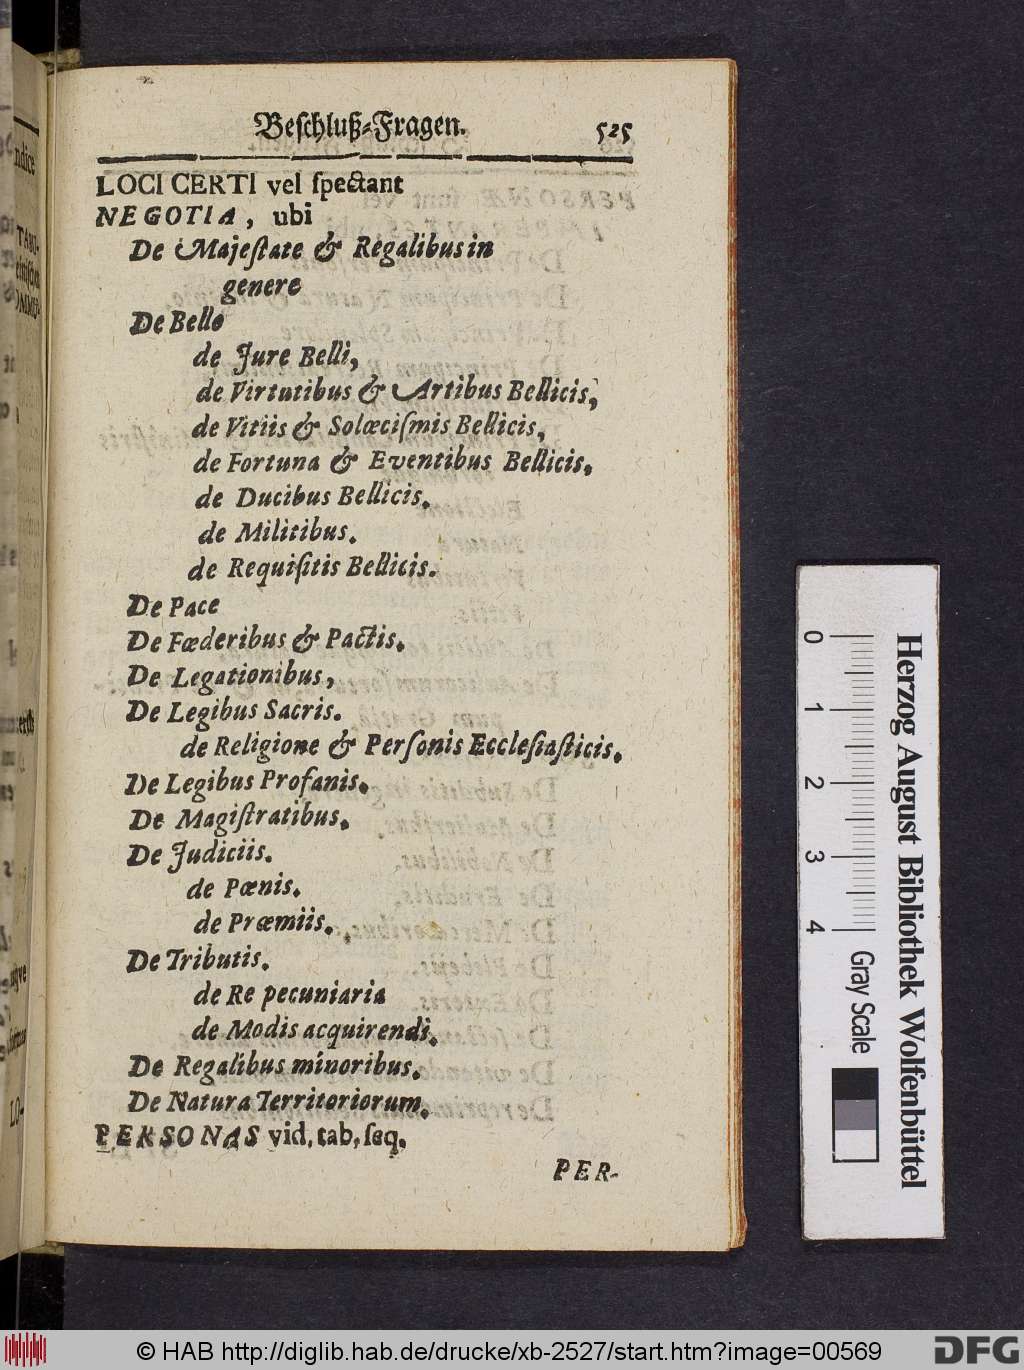 Beſchluß-Fragen. 525
LOCI CERTI vel ſpectant
NEGOTIA, ubi
De Majeſtate & Regalibus in
genere
De Bello
de Jure Belli,
de Virtutibus & Artibus Bellicis,
de Vitiis & Solœciſmis Bellicis,
de Fortuna & Eventibus Bellicis.
de Ducibus Bellicis.
de Militibus.
de Requiſitis Bellicis.
De Pace
De Fœderibus & Pactis.
De Legationibus,
De Legibus Sacris.
de Religione & Perſonis Eccleſiaſticis.
De Legibus Profanis.
De Magiſtratibus.
De Judiciis.
de Pœnis.
de Præmiis.
De Tributis.
de Re pecuniaria
de Modis acquirendi.
De Regalibus minoribus.
De Natura Territoriorum.
PERSONAS vid. tab. ſeq.
PER-
0 1 2 3 4
Gray Scale
Herzog August Bibliothek Wolfenbüttel
© HAB http://diglib.hab.de/drucke/xb-2527/start.htm?image=00569
DFG